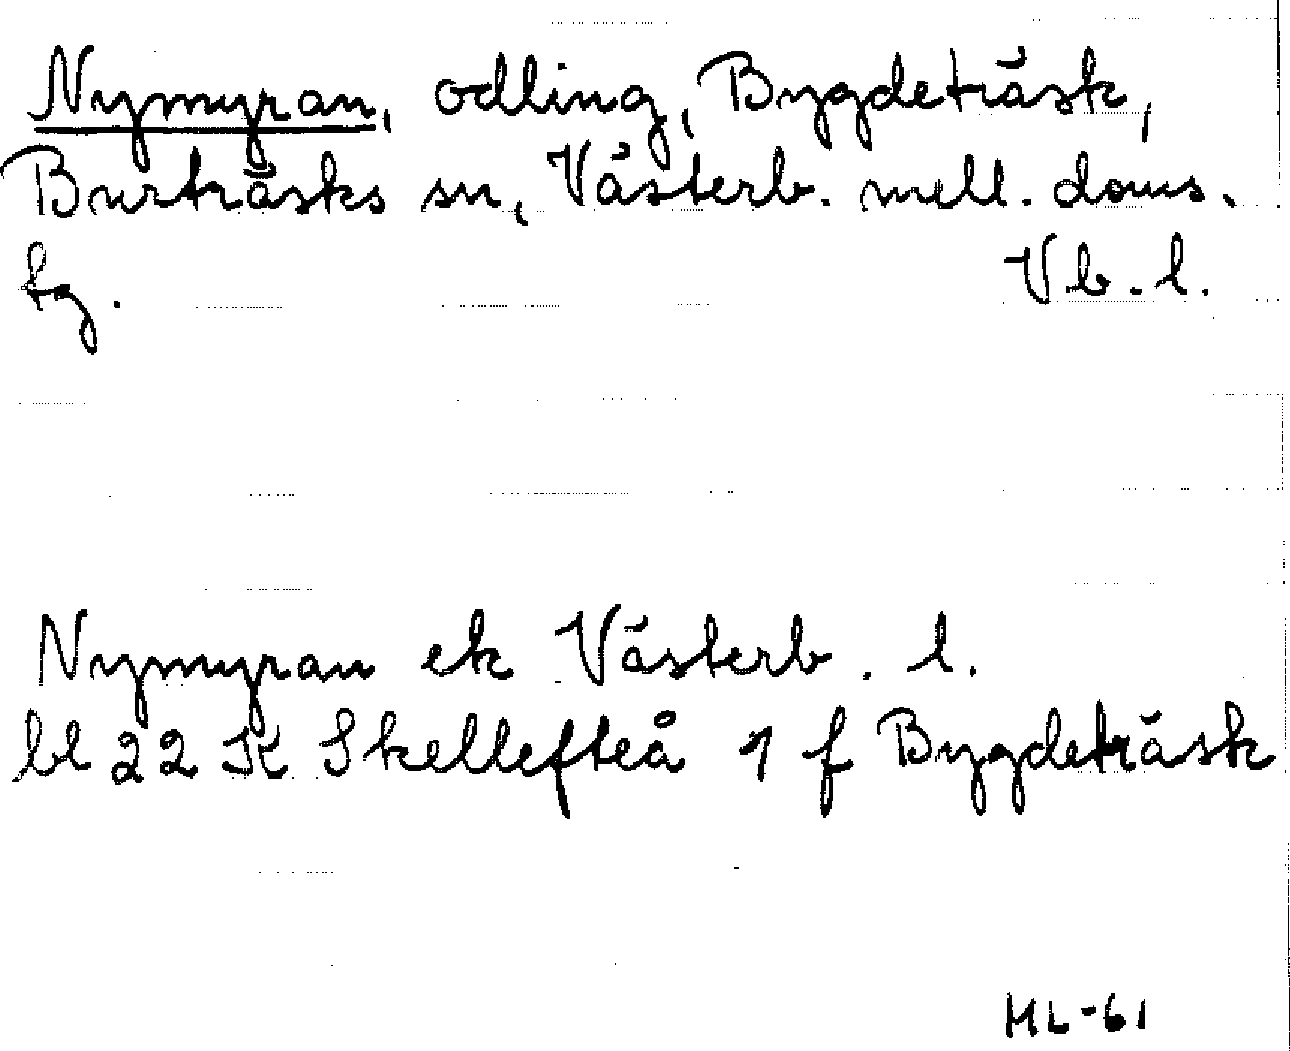 Nymyran, odling, Bygdeträsk,
Burträsks sn, Västerb. mell. doms.
tg. Vb. l.
Nymyran ek Västerb. l.
bl 22 K Skellefteå 1 f Bygdeträsk
ML-61